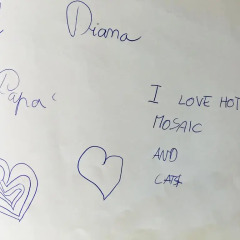 Diana
Papa'
I LOVE HOT
MOSAIC
AND
CATS